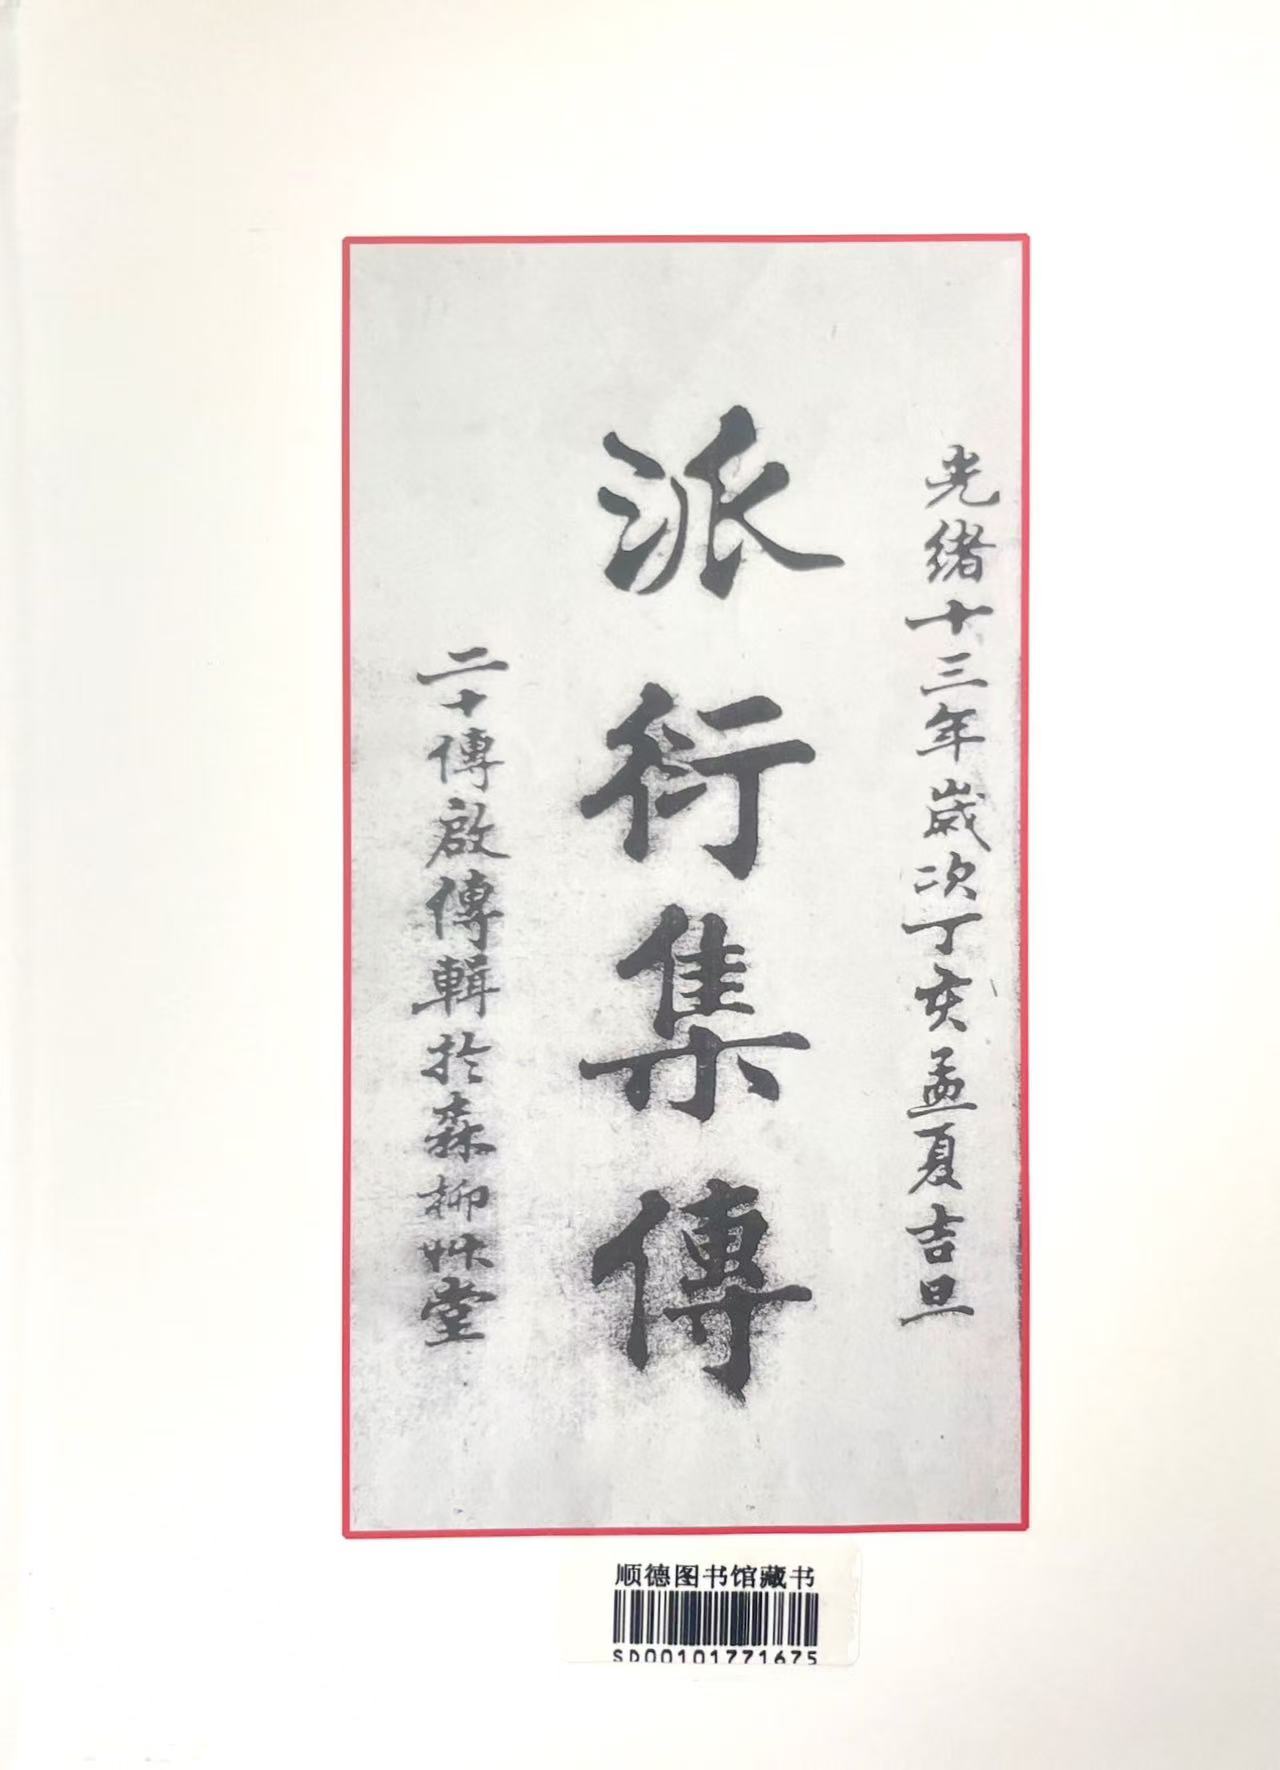 光緒十三年歲次丁亥孟夏吉旦
派衍集傳
二十傳啟傳輯於森柳艸堂
顺德图书馆藏书
SD00101771675